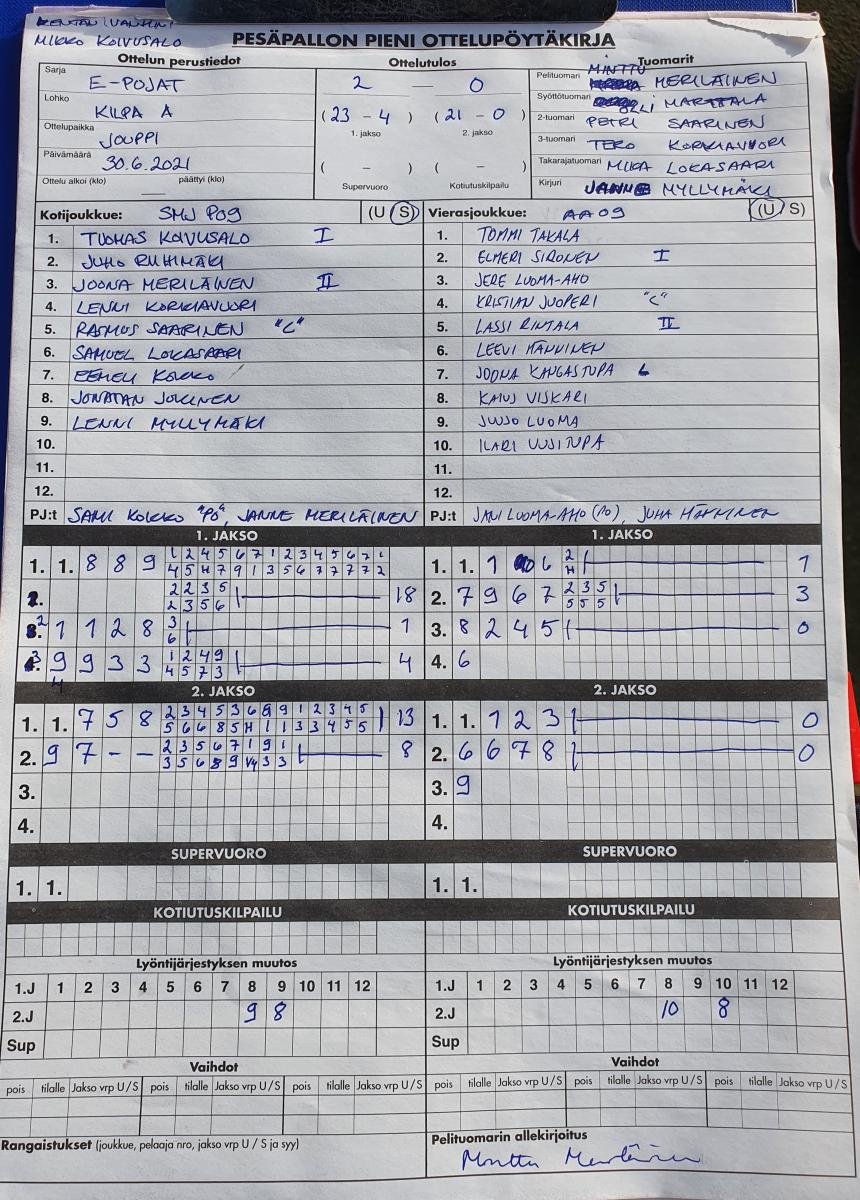 KENTÄN VANHIN
MIKKO KOIVUSALO
PESÄPALLON PIENI OTTELUPÖYTÄKIRJA
Ottelun perustiedot Ottelutulos Tuomarit
Sarja E-POJAT 2 — 0 Pelituomari MINTTU MERILÄINEN
Lohko KILPA A Syöttötuomari OLLI MARTTALA
Ottelupaikka JOUPPI (23 - 4) (21 - 0) 2-tuomari PETRI SAARINEN
1. jakso 2. jakso
Päivämäärä 30.6.2021 3-tuomari TERO KORKIAVUORI
( - ) ( - ) Takarajatuomari MIKA LOKASAARI
Ottelu alkoi (klo) — päättyi (klo) Supervuoro Kotiutuskilpailu Kirjuri JANNE MYLLYMÄKI
Kotijoukkue: SMJ P09 (U S) Vierasjoukkue: AA 09 (U S)
1. TUOMAS KOIVUSALO I 1. TOMMI TAKALA
2. JUHO RUHIMÄKI 2. ELMERI SIRONEN I
3. JOONA MERILÄINEN II 3. JERE LUOMA-AHO
4. LENNI KORKIAVUORI 4. KRISTIAN JUOPERI "C"
5. RASMUS SAARINEN "C" 5. LASSI RINTALA II
6. SAMUEL LOKASAARI 6. LEEVI HÄNNINEN
7. EEMELI KOKKO 7. JOONA KANGASTUPA
8. JONATAN JOKINEN 8. KAIUS VISKARI
9. LENNI MYLLYMÄKI 9. JUUSO LUOMA
10. 10. ILARI UUSITUPA
11. 11.
12. 12.
PJ:t SAMI KOKKO "PÖ", JANNE MERILÄINEN PJ:t JANI LUOMA-AHO (PÖ), JUHA HÄNNINEN
1. JAKSO 1. JAKSO
1. 1. 8 8 9 1 2 4 5 6 7 1 2 3 4 5 6 7 1 1. 1. 1 6 2 1
4 5 H 7 9 1 3 5 6 7 7 7 7 2 H
2 2 3 5 18 2. 7 9 6 7 2 3 5 3
2 3 5 6 5 5 5
2 1 1 2 8 3 1 3. 8 2 4 5 0
6
3 9 9 3 3 1 2 4 9 4 4. 6
4 4 5 7 3
2. JAKSO 2. JAKSO
1. 1. 7 5 8 2 3 4 5 3 6 8 9 1 2 3 4 5 13 1. 1. 1 2 3 0
5 6 6 8 5 H 1 1 3 3 4 5 5
2. 9 7 - - 2 3 5 6 7 1 9 1 8 2. 6 6 7 8 0
3 5 6 8 9 V4 3 3
3. 3. 9
4. 4.
SUPERVUORO SUPERVUORO
1. 1. 1. 1.
KOTIUTUSKILPAILU KOTIUTUSKILPAILU
Lyöntijärjestyksen muutos Lyöntijärjestyksen muutos
1.J 1 2 3 4 5 6 7 8 9 10 11 12 1.J 1 2 3 4 5 6 7 8 9 10 11 12
2.J 9 8 2.J 10 8
Sup Sup
Vaihdot Vaihdot
pois tilalle Jakso vrp U/S pois tilalle Jakso vrp U/S pois tilalle Jakso vrp U/S pois tilalle Jakso vrp U/S pois tilalle Jakso vrp U/S pois tilalle Jakso vrp U/S
Rangaistukset (joukkue, pelaaja nro, jakso vrp U / S ja syy) Pelituomarin allekirjoitus
Minttu Meriläinen